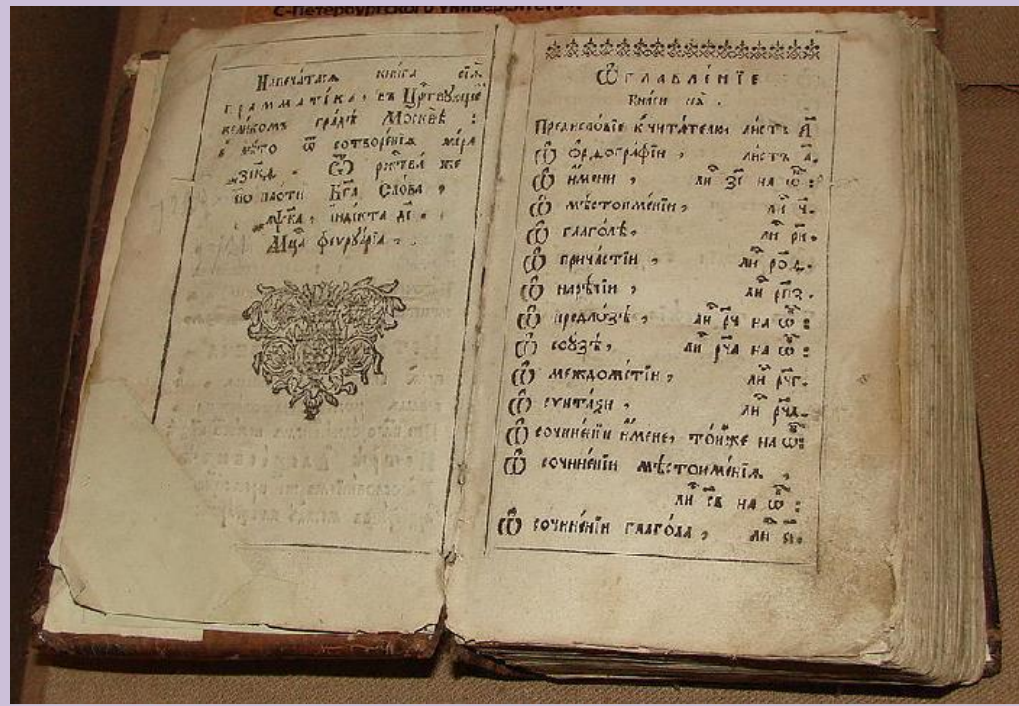 С-Петербургского университета
Напеча́тасѧ кни́га сїѧ̀
грамматі́ка, въ Црⷭ҇твующе
вели́комъ гра́дѣ Москвѣ̀ :
в лѣ́то ѿ сотворе́нїѧ мі́ра
Ѿ рж҃тва́ же
по пло́ти Бг҃а Сло́ва ,
҂аѱк҃а , інді́кта д҃і .
Мцⷭ҇а феѵруа́рїа .
Ѡглавле́нїе
Кни́ги сеѧ̀ .
Предисло́вїе к чита́телю ли́стъ а҃
Ѡ ѻ҆рѳогра́фїи , ли́стъ а҃.
Ѡ и҆́мени , лиⷭ҇ з҃і на ѡ҆б :
Ѡ мѣстоиме́нїи , лиⷭ҇ ч҃.
Ѡ глаго́лѣ , лиⷭ҇ рн҃.
Ѡ прича́стїи , лиⷭ҇ род҃.
Ѡ нарѣ́чїи , лиⷭ҇ рпз҃.
Ѡ предло́зѣ , лиⷭ҇ рч҃ на ѡ҆б :
Ѡ сою́зѣ , лиⷭ҇ рча҃ на ѡ҆б :
Ѡ междоме́тїи , лиⷭ҇ рчг҃.
Ѡ сѵнта́ѯи , лиⷭ҇ рчд҃.
Ѡ сочине́нїи и҆́мене, то́йже на ѡ҆б :
Ѡ сочине́нїи мѣстоиме́нїѧ ,
лиⷭ҇ св҃ на ѡ҆б :
Ѡ сочине́нїи глаго́ла , лиⷭ҇